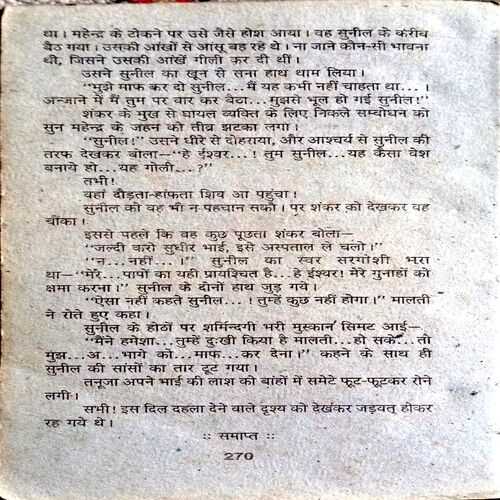 था। महेन्द्र के टोकने पर उसे जैसे होश आया। वह सुनील के करीब
बैठ गया। उसकी आंखों से आंसू बह रहे थे। ना जाने कौन-सी भावना
थी, जिसने उसकी आंखें गीली कर दी थीं।
उसने सुनील का खून से सना हाथ थाम लिया।
“मुझे माफ कर दो सुनील...मैं यह कभी नहीं चाहता था...।
अन्जाने में मैं तुम पर वार कर बैठा...मुझसे भूल हो गई सुनील!”
शंकर के मुख से घायल व्यक्ति के लिए निकले सम्बोधन को
सुन महेन्द्र के जहन को तीव्र झटका लगा।
“सुनील!” उसने धीरे से दोहराया, और आश्चर्य से सुनील की
तरफ देखकर बोला—“हे ईश्वर...! तुम सुनील...यह कैसा वेश
बनाये हो...यह गोली...?”
तभी!
वहां दौड़ता-हांफता शिव आ पहुंचा।
सुनील को वह भी न पहचान सका। पर शंकर को देखकर वह
चौंका।
इससे पहले कि वह कुछ पूछता शंकर बोला—
“जल्दी करो सुधीर भाई, इसे अस्पताल ले चलो।”
“न...नहीं...।” सुनील का स्वर सरगोशी भरा
था—“मेरे...पापों का यही प्रायश्चित है...हे ईश्वर! मेरे गुनाहों को
क्षमा करना।” सुनील के दोनों हाथ जुड़ गये।
“ऐसा नहीं कहते सुनील...! तुम्हें कुछ नहीं होगा।” मालती
ने रोते हुए कहा।
सुनील के होठों पर शर्मिन्दगी भरी मुस्कान सिमट आई—
“मैंने हमेशा...तुम्हें दुःखी किया है मालती...हो सके...तो
मुझ...अ...भागे को...माफ...कर देना।” कहने के साथ ही
सुनील की सांसों का तार टूट गया।
तनूजा अपने भाई की लाश को बांहों में समेटे फूट-फूटकर रोने
लगी।
सभी! इस दिल दहला देने वाले दृश्य को देखकर जड़वत् होकर
रह गये थे।
:: समाप्त ::
270